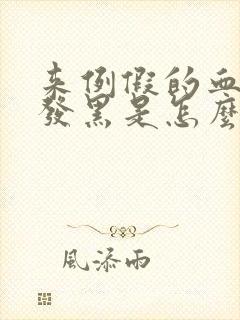 来例假的血
發黑是怎麼
風添雨